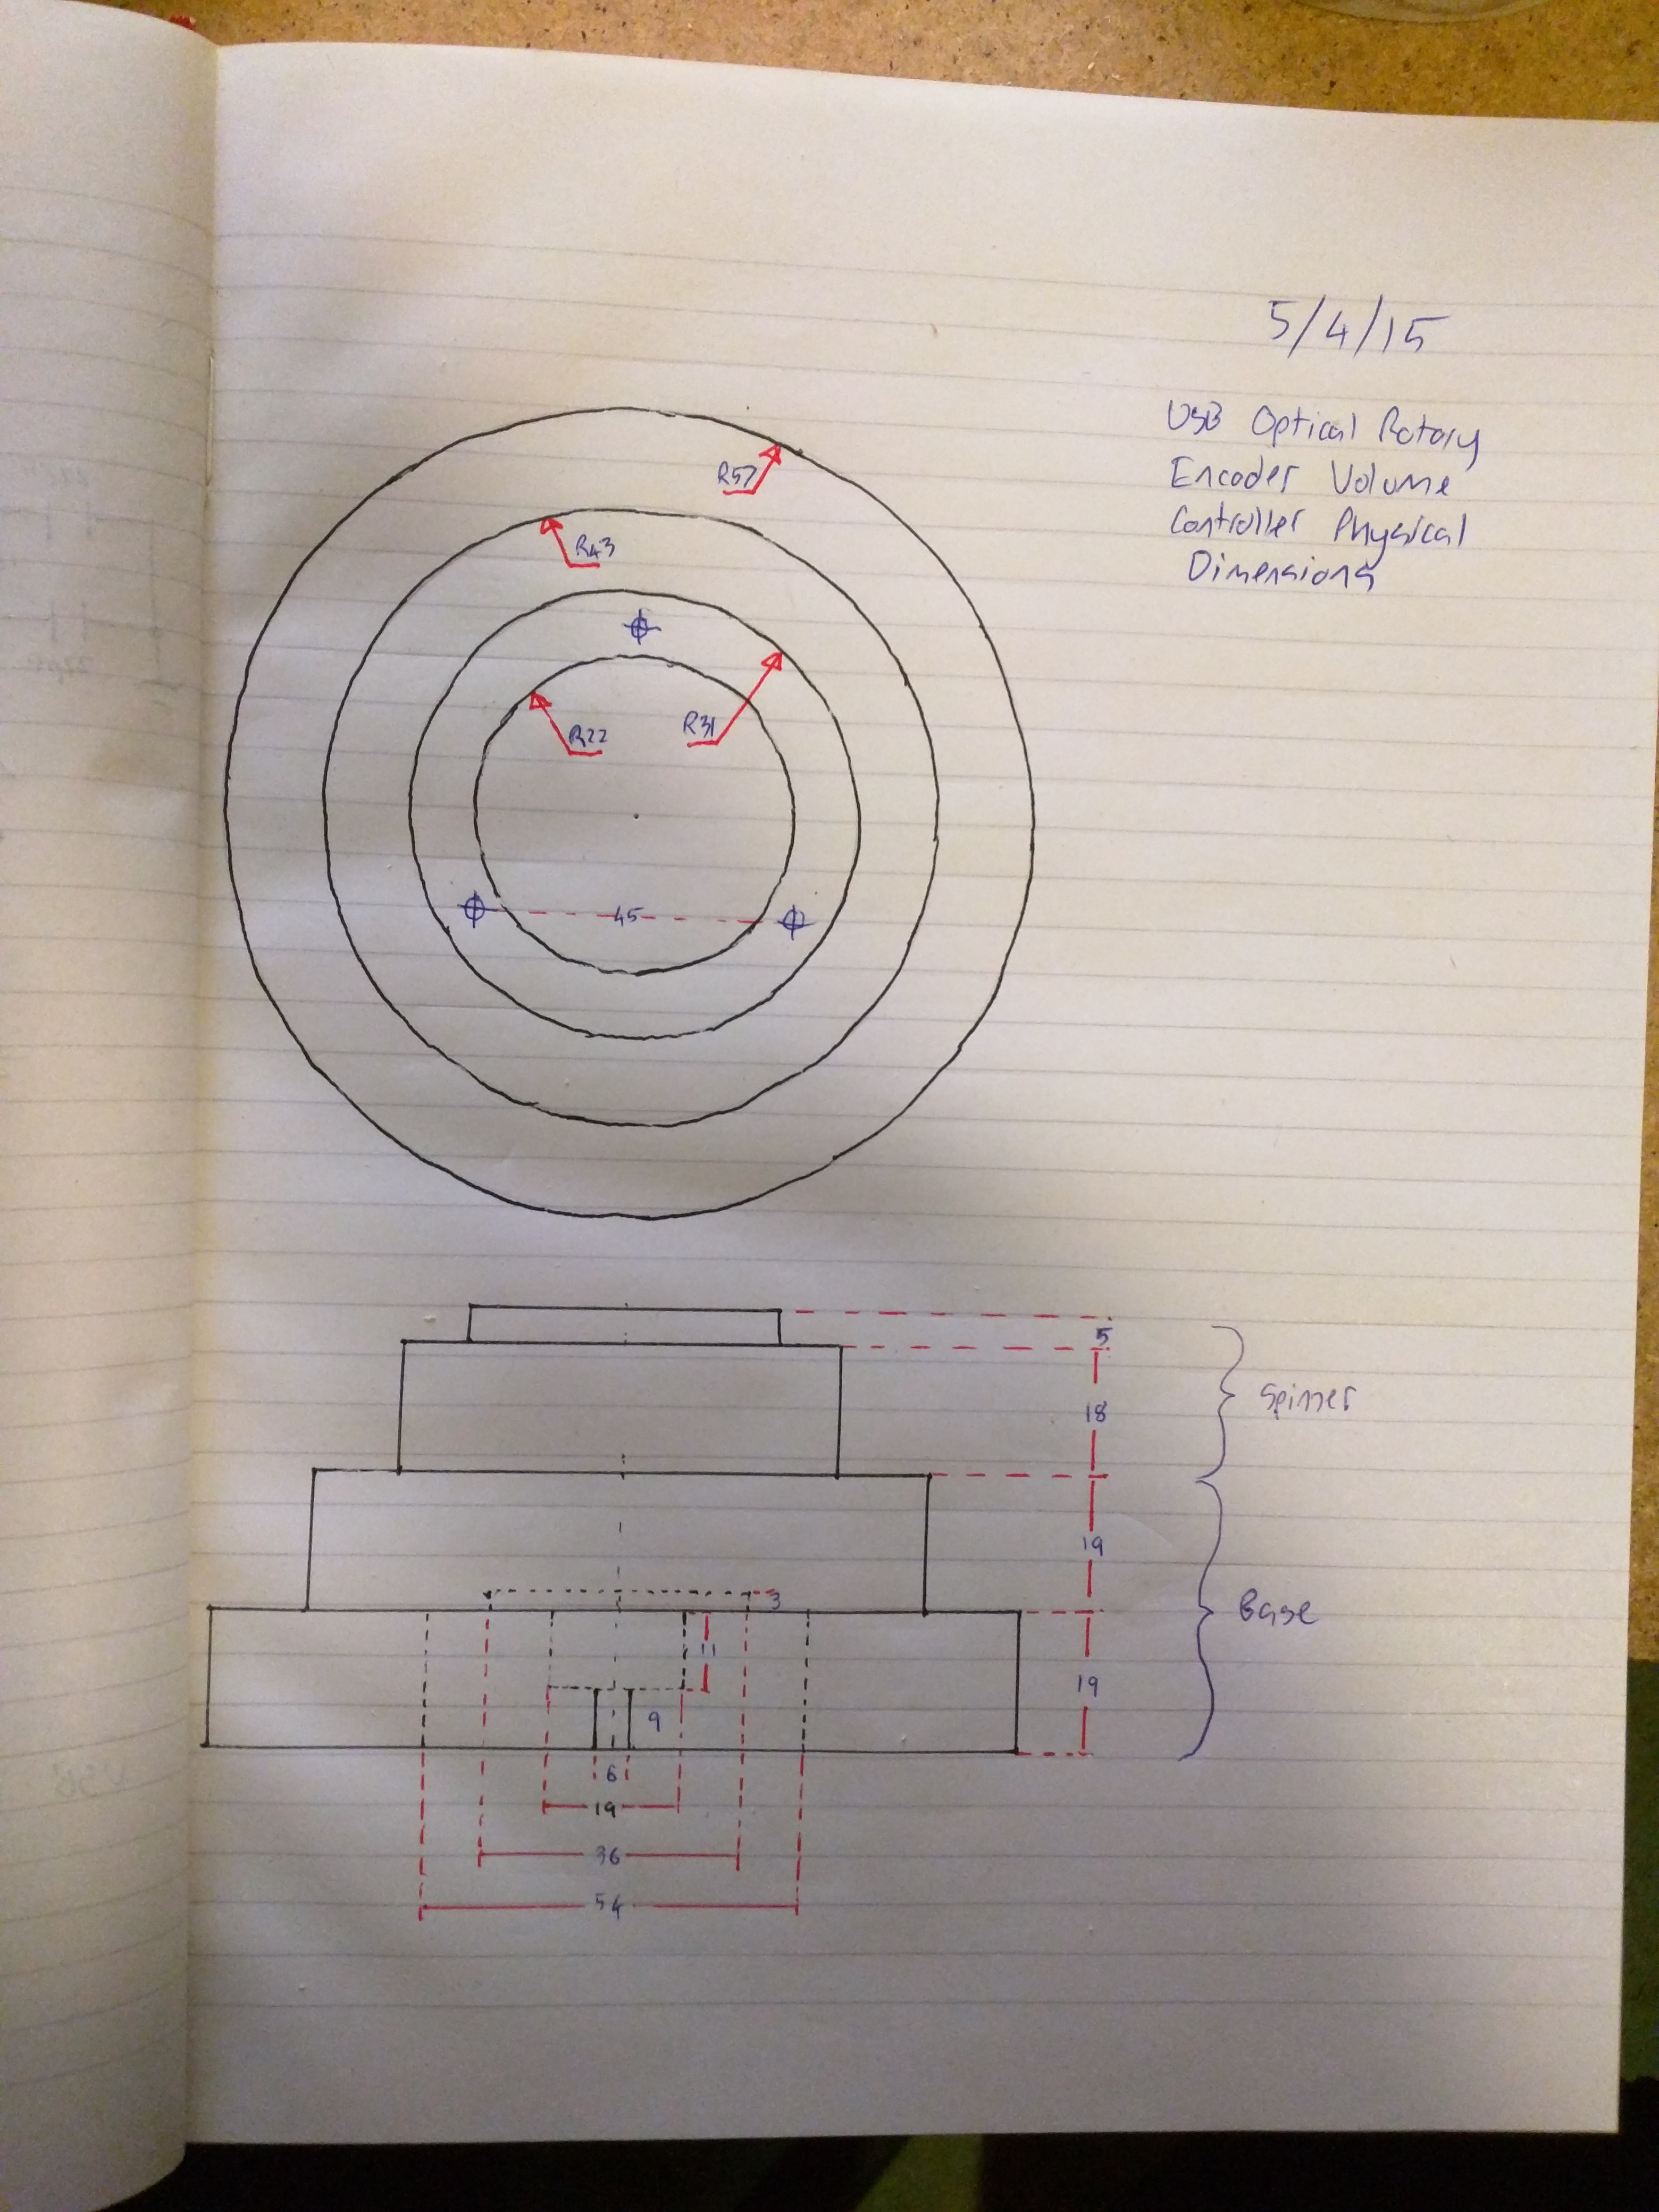 5/4/15
USB Optical Rotary
Encoder Volume
Controller Physical
Dimensions
R57
R43
R22
R31
45
5
18
Spinner
19
3
Base
11
19
9
6
19
36
54